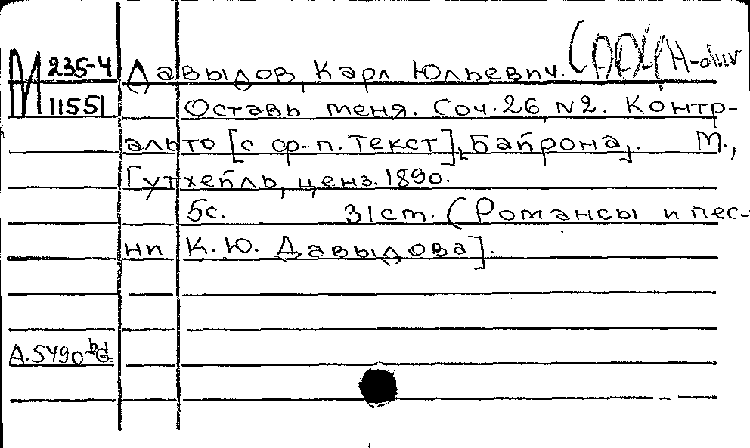 М 235-4 Давыдов, Карл Юльевич.
11551 Оставь меня. Соч. 26, N2. Контр-
альто [с ф-п. Текст] [Байрона]. М.,
Гутхейль, ценз. 1890.
5с. 31 ст. (Романсы и пес-
ни К.Ю. Давыдова].
Д.5490